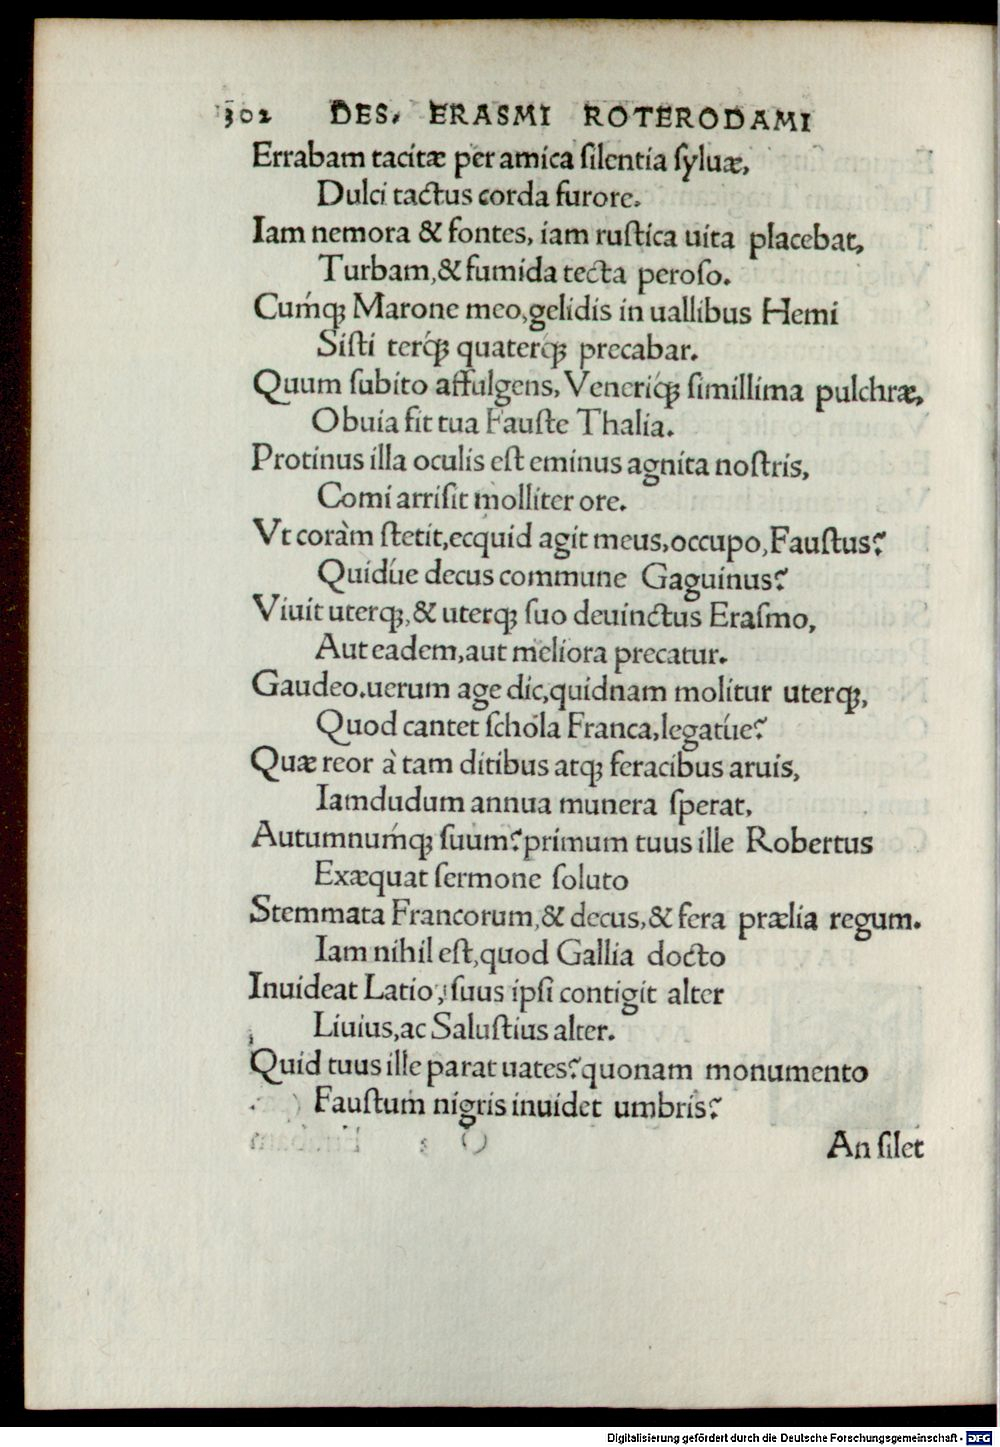 302 DES. ERASMI ROTERODAMI
Errabam tacitæ per amica ſilentia ſyluæ,
Dulci tactus corda furore.
Iam nemora & fontes, iam ruſtica uita placebat,
Turbam, & fumida tecta peroſo.
Cumq́; Marone meo, gelidis in uallibus Hemi
Siſti terq́; quaterq́; precabar.
Quum ſubito affulgens, Veneriq́; ſimillima pulchræ,
Obuia fit tua Fauſte Thalia.
Protinus illa oculis eſt eminus agnita noſtris,
Comi arriſit molliter ore.
Vt coràm ſtetit, ecquid agit meus, occupo, Fauſtus?
Quidúe decus commune Gaguinus?
Viuit uterq;, & uterq; ſuo deuinctus Eraſmo,
Aut eadem, aut meliora precatur.
Gaudeo. uerum age dic, quidnam molitur uterq;,
Quod cantet ſchola Franca, legatúe?
Quæ reor à tam ditibus atq; feracibus aruis,
Iamdudum annua munera ſperat,
Autumnumq́; ſuum? primum tuus ille Robertus
Exæquat ſermone ſoluto
Stemmata Francorum, & decus, & fera prælia regum.
Iam nihil eſt, quod Gallia docto
Inuideat Latio, ſuus ipſi contigit alter
Liuius, ac Saluſtius alter.
Quid tuus ille parat uates? quonam monumento
Fauſtum nigris inuidet umbris?
An ſilet
Digitalisierung gefördert durch die Deutsche Forschungsgemeinschaft - DFG